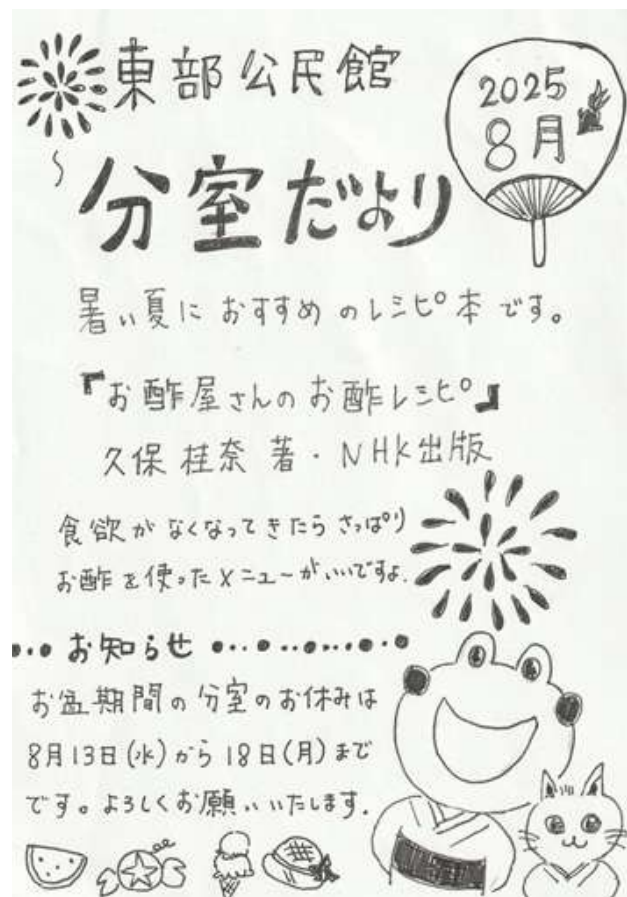 東部公民館
2025
8月
分室だより
暑い夏におすすめのレシピ本です。
『お酢屋さんのお酢レシピ』
久保 桂奈 著・NHK出版
食欲がなくなってきたらさっぱり
お酢を使ったメニューがいいですよ.
お知らせ
お盆期間の分室のお休みは
8月13日(水)から18日(月)まで
です。よろしくお願いいたします.